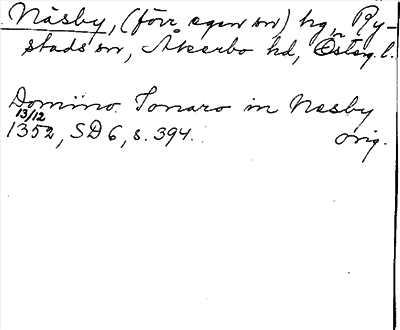 Näsby, (förr egen sn) hg, n Ry-
stads sn, Åkerbo hd, Österg. l.
Domino. Tonaro in Næsby
13/12
1352, SD 6, s. 394. orig.